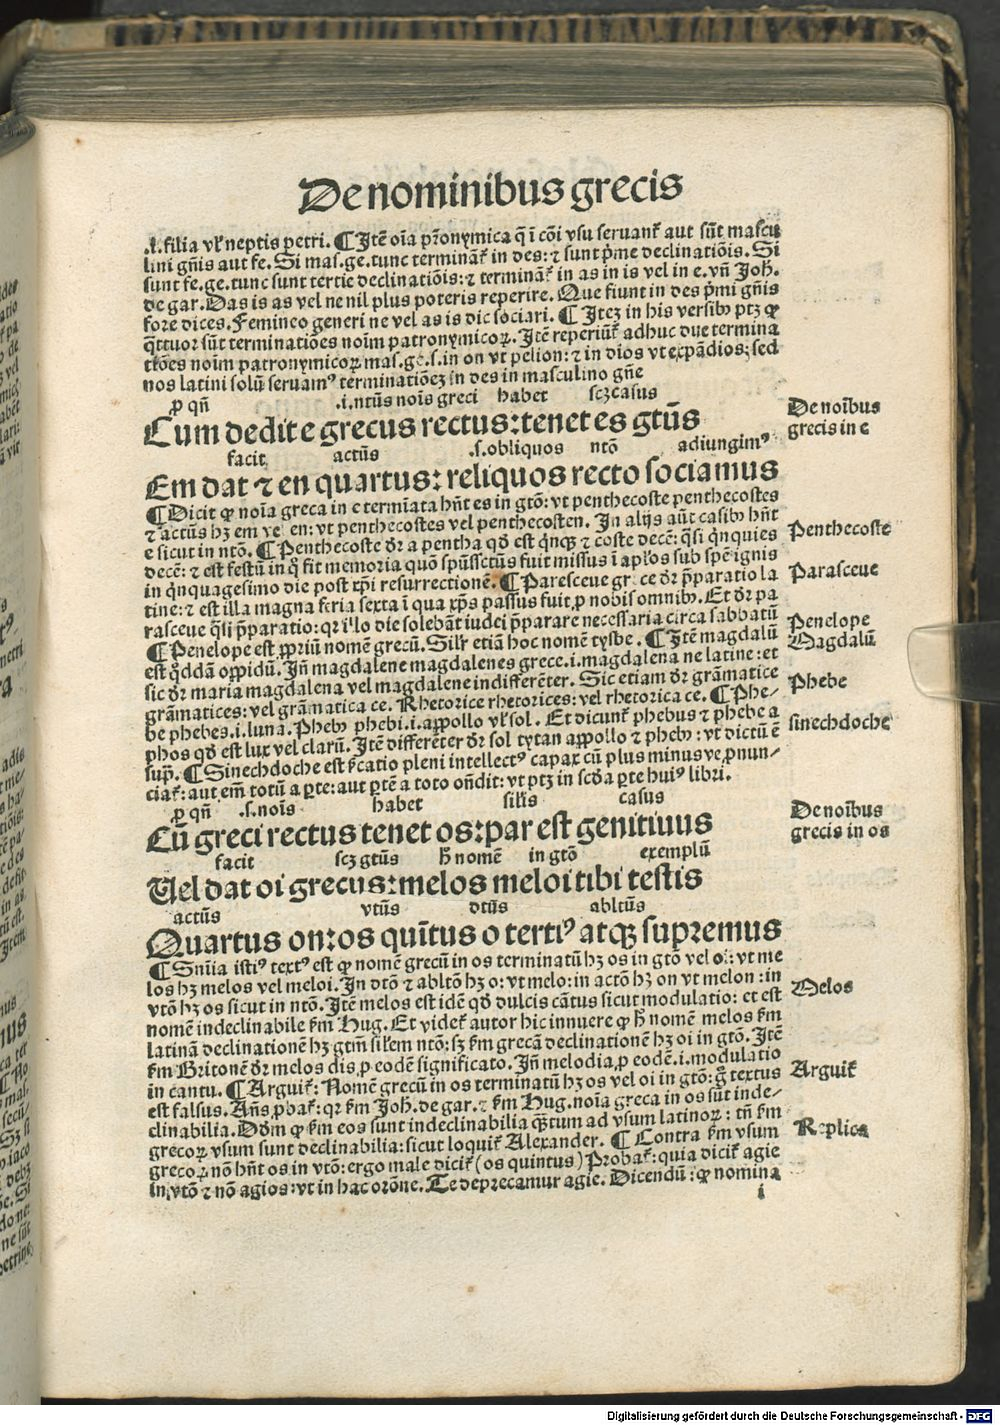 De nominibus grecis
.i. filia vl' neptis petri. ¶ Itē oīa pr̄onymica q̄ ī cōi vsu seruanſ aut sūt mascu
lini gn̄is aut fe. Si mas. ge. tunc termināſ in des: ⁊ sunt pͥme declinatiōis. Si
sunt fe. ge. tunc sunt tertie declinatiōis: ⁊ termināſ in as in is vel in e. vn̄ Joh̄.
de gar. Das is as vel ne nil plus poteris reperire. Que fiunt in des pͥmi gn̄is
fore dices. Femineo generi ne vel as is dic sociari. ¶ Iteꝫ in his versibꝰ ptꝫ ꝙ
q̄ttuor sūt terminatiōes noīm patronymicoꝝ. Itē reperiūſ adhuc due termina
tiōes noīm patronymicoꝝ mas. ge. s. in on vt pelion: ⁊ in dios vt expādios; sed
nos latini solū seruamꝰ terminatiōeꝫ in des in masculino gn̄e
ꝓ qn̄ .i. ntūs noīs greci habet scꝫ casus
Cum dedit e grecus rectus: tenet es gtūs
De noībus
grecis in e
facit actūs .s. obliquos ntō adiungimꝰ
Em dat ⁊ en quartus: reliquos recto sociamus
¶ Dicit ꝙ noīa greca in e termīata hn̄t es in gtō: vt penthecoste penthecostes
⁊ actūs hꝫ em vel en: vt penthecostes vel penthecosten. In alijs aūt casibꝰ hn̄t
e sicut in ntō. ¶ Penthecoste dr̄ a pentha qd̄ est qͥnqꝫ ⁊ coste decē: q̄si qͥnquies
Penthecoste
decē: ⁊ est festū in q̄ fit memoria quō spūssctūs fuit missus ī apl'os sub spē ignis
in qͥnquagesimo die post xp̄i resurrectionē. ¶ Parasceue grece dr̄ pͣparatio la
Parasceue
tine: ⁊ est illa magna feria sexta ī qua xp̄s passus fuit ꝓ nobis omnibꝰ. Et dr̄ pa
rasceue q̄si pͣparatio: qr illo die solebāt iudei pͣparare necessaria circa sabbatū
¶ Penelope est ꝓpriū nomē grecū. Silr̄ etiā hoc nomē tysbe. ¶ Itē magdalū
Penelope
Magdalū
est qͦddā oppidū. In̄ magdalene magdalenes grece .i. magdalena ne latine: et
sic dr̄ maria magdalena vel magdalene indifferēter. Sic etiam dr̄ grāmatice
grāmatices: vel grāmatica ce. Rhetorice rhetorices: vel rhetorica ce. ¶ Phe-
Phebe
be phebes .i. luna. Phebꝰ phebi .i. appollo vl' sol. Et dicunſ phebus ⁊ phebe a
phos qd̄ est lux vel clarū. Itē differēter dr̄ sol tytan appollo ⁊ phebꝰ: vt dictū ē
sinechdoche
supͣ. ¶ Sinechdoche est ſcatio pleni intellectꝰ capax cū plus minusve ꝓnun-
ciaſ: aut em̄ totū a ꝑte: aut ꝑtē a toto on̄dit: vt ptꝫ in scd̄a ꝑte huiꝰ libri.
ꝓ qn̄ .s. noīs habet silīs casus
Cū greci rectus tenet os: par est genitiuus
De noībus
grecis in os
facit scꝫ gtūs h̄ nomē in gtō exemplū
Uel dat oi grecus: melos meloi tibi testis
actūs vtūs dtūs abltūs
Quartus on: os quītus o tertiꝰ atqꝫ supremus
¶ Sn̄ia istiꝰ textꝰ est ꝙ nomē grecū in os terminatū hꝫ os in gtō vel oi: vt me
los hꝫ melos vel meloi. In dtō ⁊ abltō hꝫ o: vt melo: in actō hꝫ on vt melon: in
Melos
vtō hꝫ os sicut in ntō. Itē melos est idē qd̄ dulcis cātus sicut modulatio: et est
nomē indeclinabile ſm Hug. Et videſ autor hic innuere ꝙ h̄ nomē melos ſm
latinā declinationē hꝫ gtm̄ silēm ntō: sꝫ ſm grecā declinationē hꝫ oi in gtō. Itē
ſm Britonē dr̄ melos dis, ꝓ eodē significato. In̄ melodia, ꝓ eodē .i. modulatio
in cantu. ¶ Arguiſ: Nomē grecū in os terminatū hꝫ os vel oi in gtō: gͦ textus
Arguiſ
est falsus. An̄s ꝓbaſ: qr ſm Joh̄. de gar. ⁊ ſm Hug. noīa greca in os sūt inde-
clinabilia. Dōm ꝙ ſm eos sunt indeclinabilia q̄ꝫtum ad vsum latinoꝝ: tn̄ ſm
grecoꝝ vsum sunt declinabilia: sicut loquiſ Alexander. ¶ Contra ſm vsum
Replica
grecoꝝ nō hn̄t os in vtō: ergo male diciſ (os quintus) Probaſ: quia diciſ agie
in vtō ⁊ nō agios: vt in hac orōne. Te deprecamur agie. Dicendū: ꝙ nomina
i
Digitalisierung gefördert durch die Deutsche Forschungsgemeinschaft - DFG